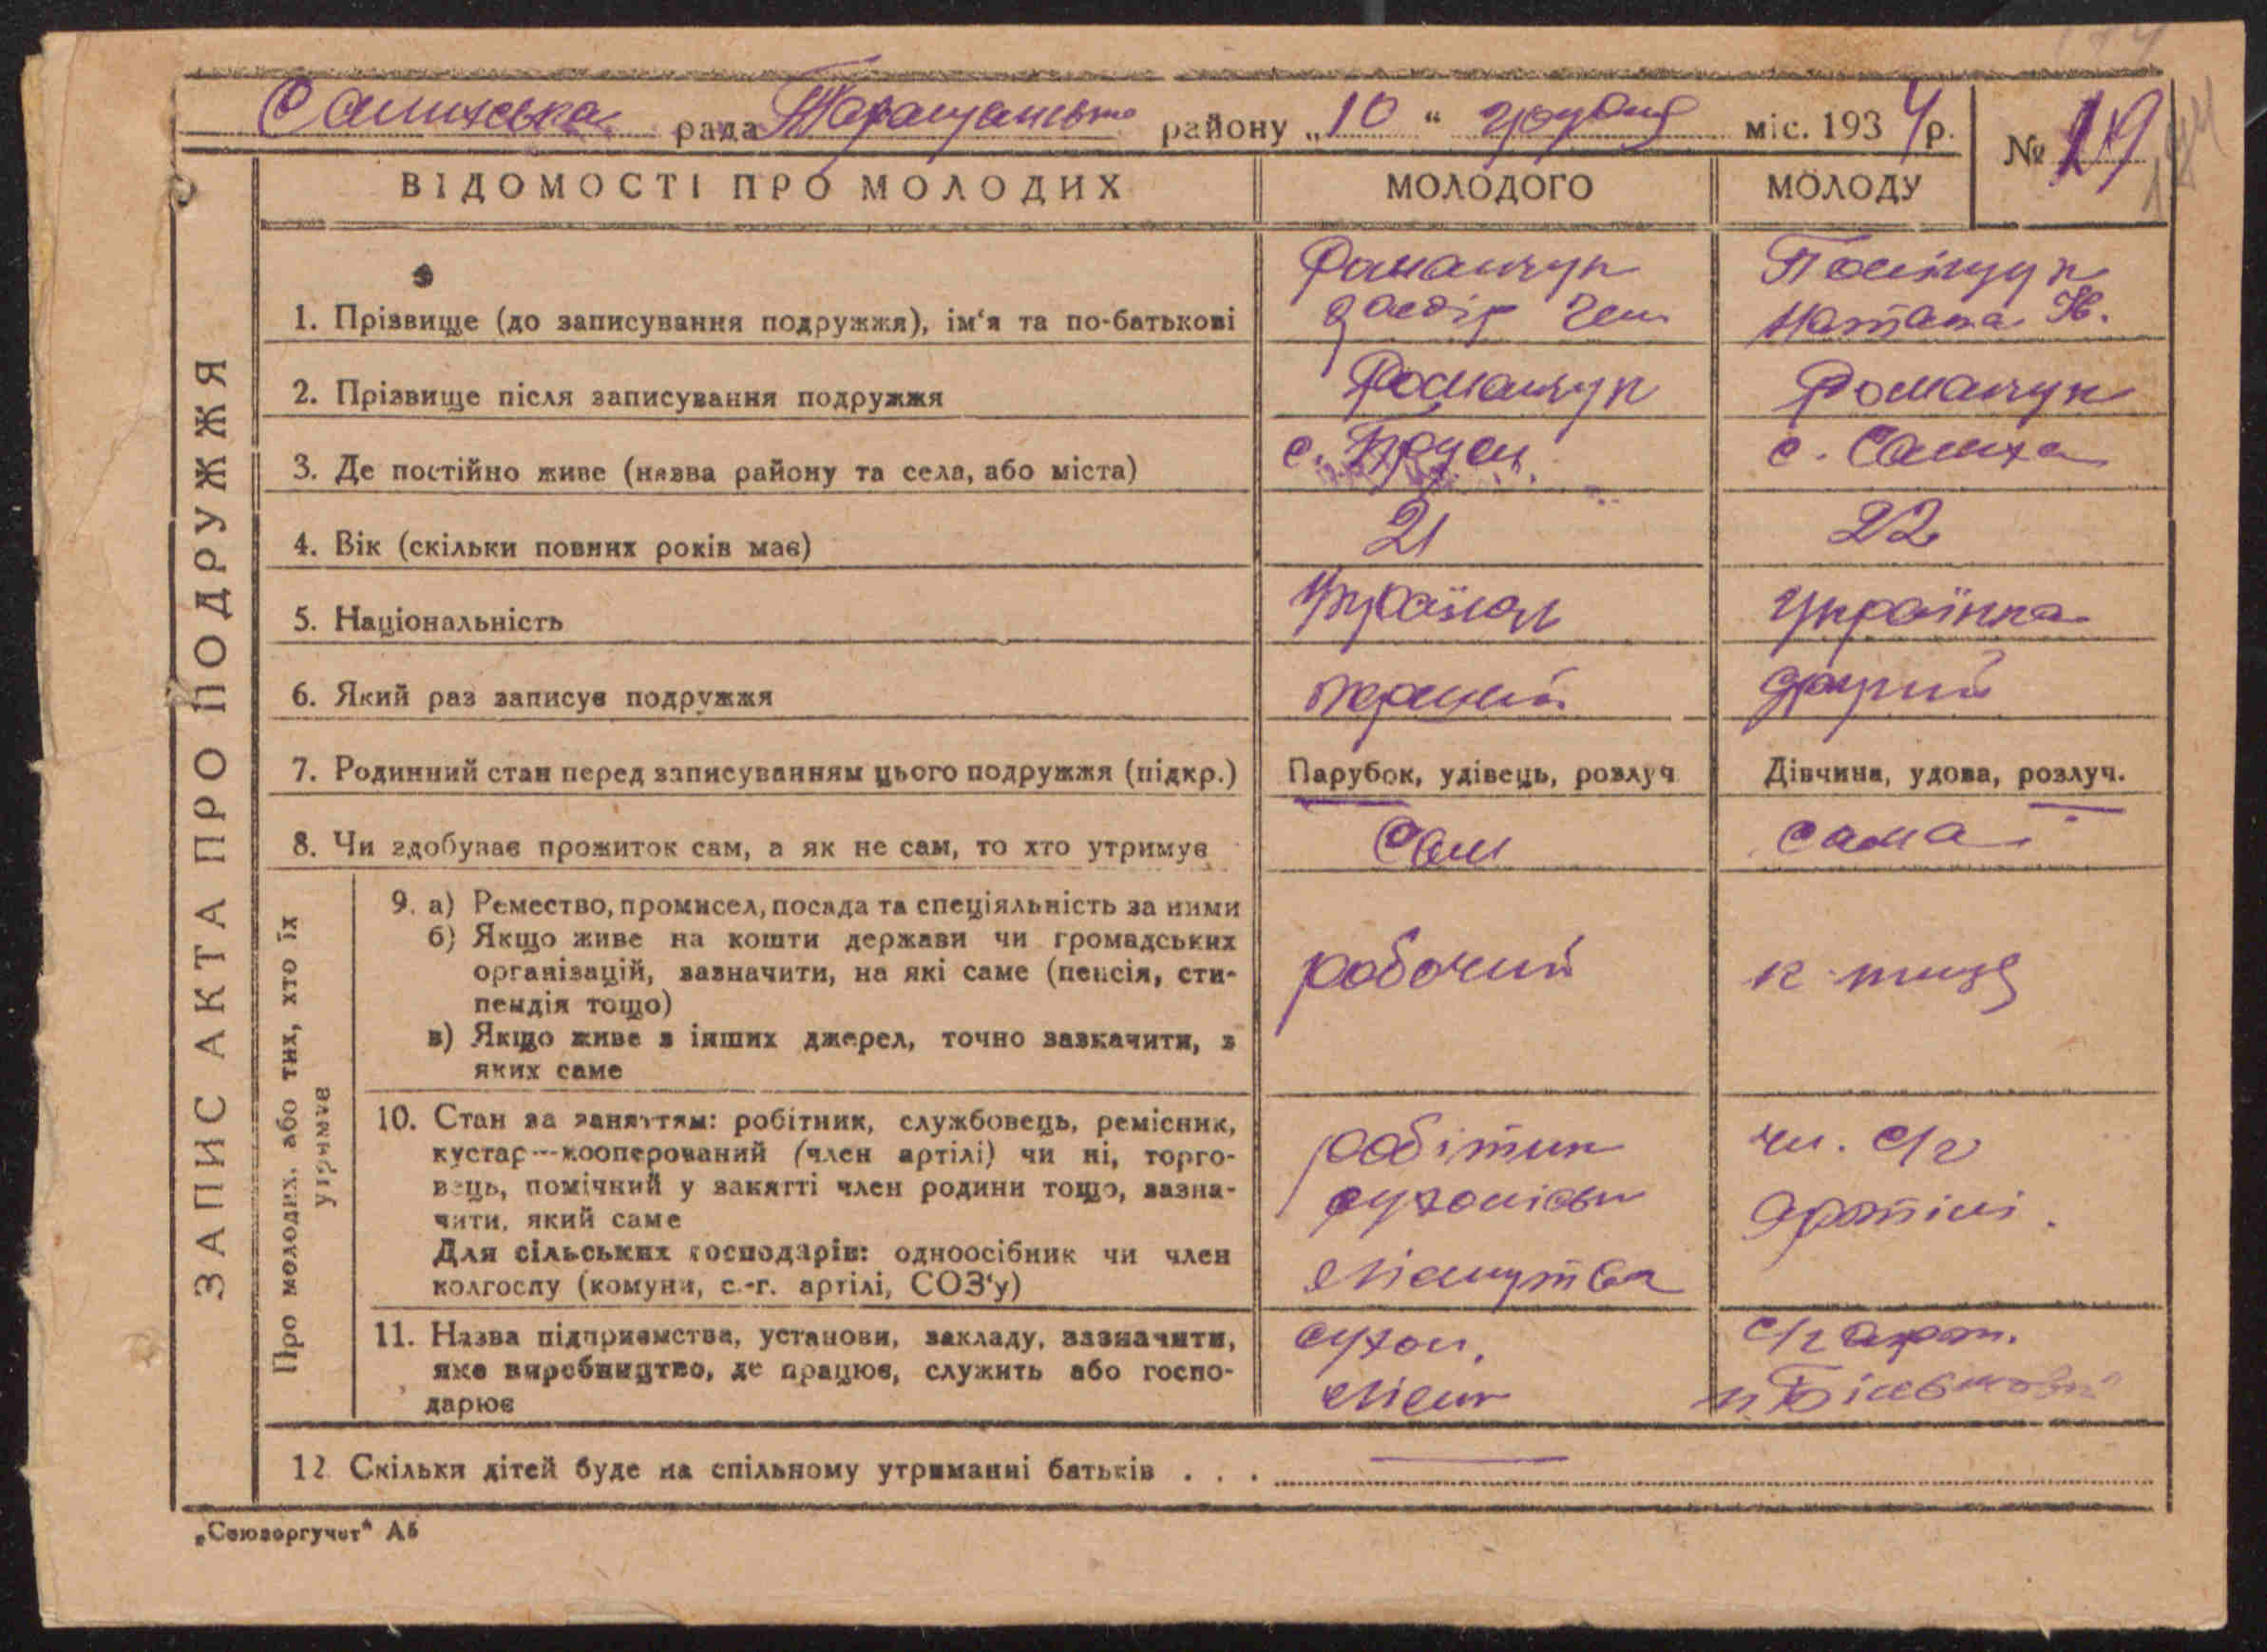 Салиська рада Таращанського району „10 “ грудня міс. 1934 р.
№ 19
ВІДОМОСТІ ПРО МОЛОДИХ МОЛОДОГО МОЛОДУ
ЗАПИС АКТА ПРО ПОДРУЖЖЯ
Романчук
1. Прізвище (до записування подружжя), ім‘я та по-батькові
Наталя
2. Прізвище після записування подружжя Романчук Романчук
3. Де постійно живе (назва району та села, або міста) с. с.
4. Вік (скільки повних років має) 21 22
5. Національність Українец Українка
6. Який раз записує подружжя первий другий
7. Родинний стан перед записуванням цього подружжя (підкр.) Парубок, удівець, розлуч Дівчина, удова, розлуч.
8. Чи здобуває прожиток сам, а як не сам, то хто утримує Сам сама
Про молодих, або тих, хто їх
утримує
9. а) Ремество, промисел, посада та спеціяльність за ними
б) Якщо живе на кошти держави чи громадських
організацій, зазначити, на які саме (пенсія, сти-
пендія тощо)
в) Якщо живе з інших джерел, точно зазначити, з
яких саме
робочий
10. Стан за заняттям: робітник, службовець, ремісник,
кустар—кооперований (член артілі) чи ні, торго-
вець, помічний у занятті член родини тощо, зазна-
чити, який саме
Для сільських господарів: одноосібник чи член
колгоспу (комуни, с.-г. артілі, СОЗ‘у)
робітник
чл. с/г
артілі.
11. Назва підприємства, установи, закладу, зазначити,
яке виробництво, де працює, служить або госпо-
дарює
с/г арт.
12 Скільки дітей буде на спільному утриманні батьків . . .
„Союзоргучет“ А5